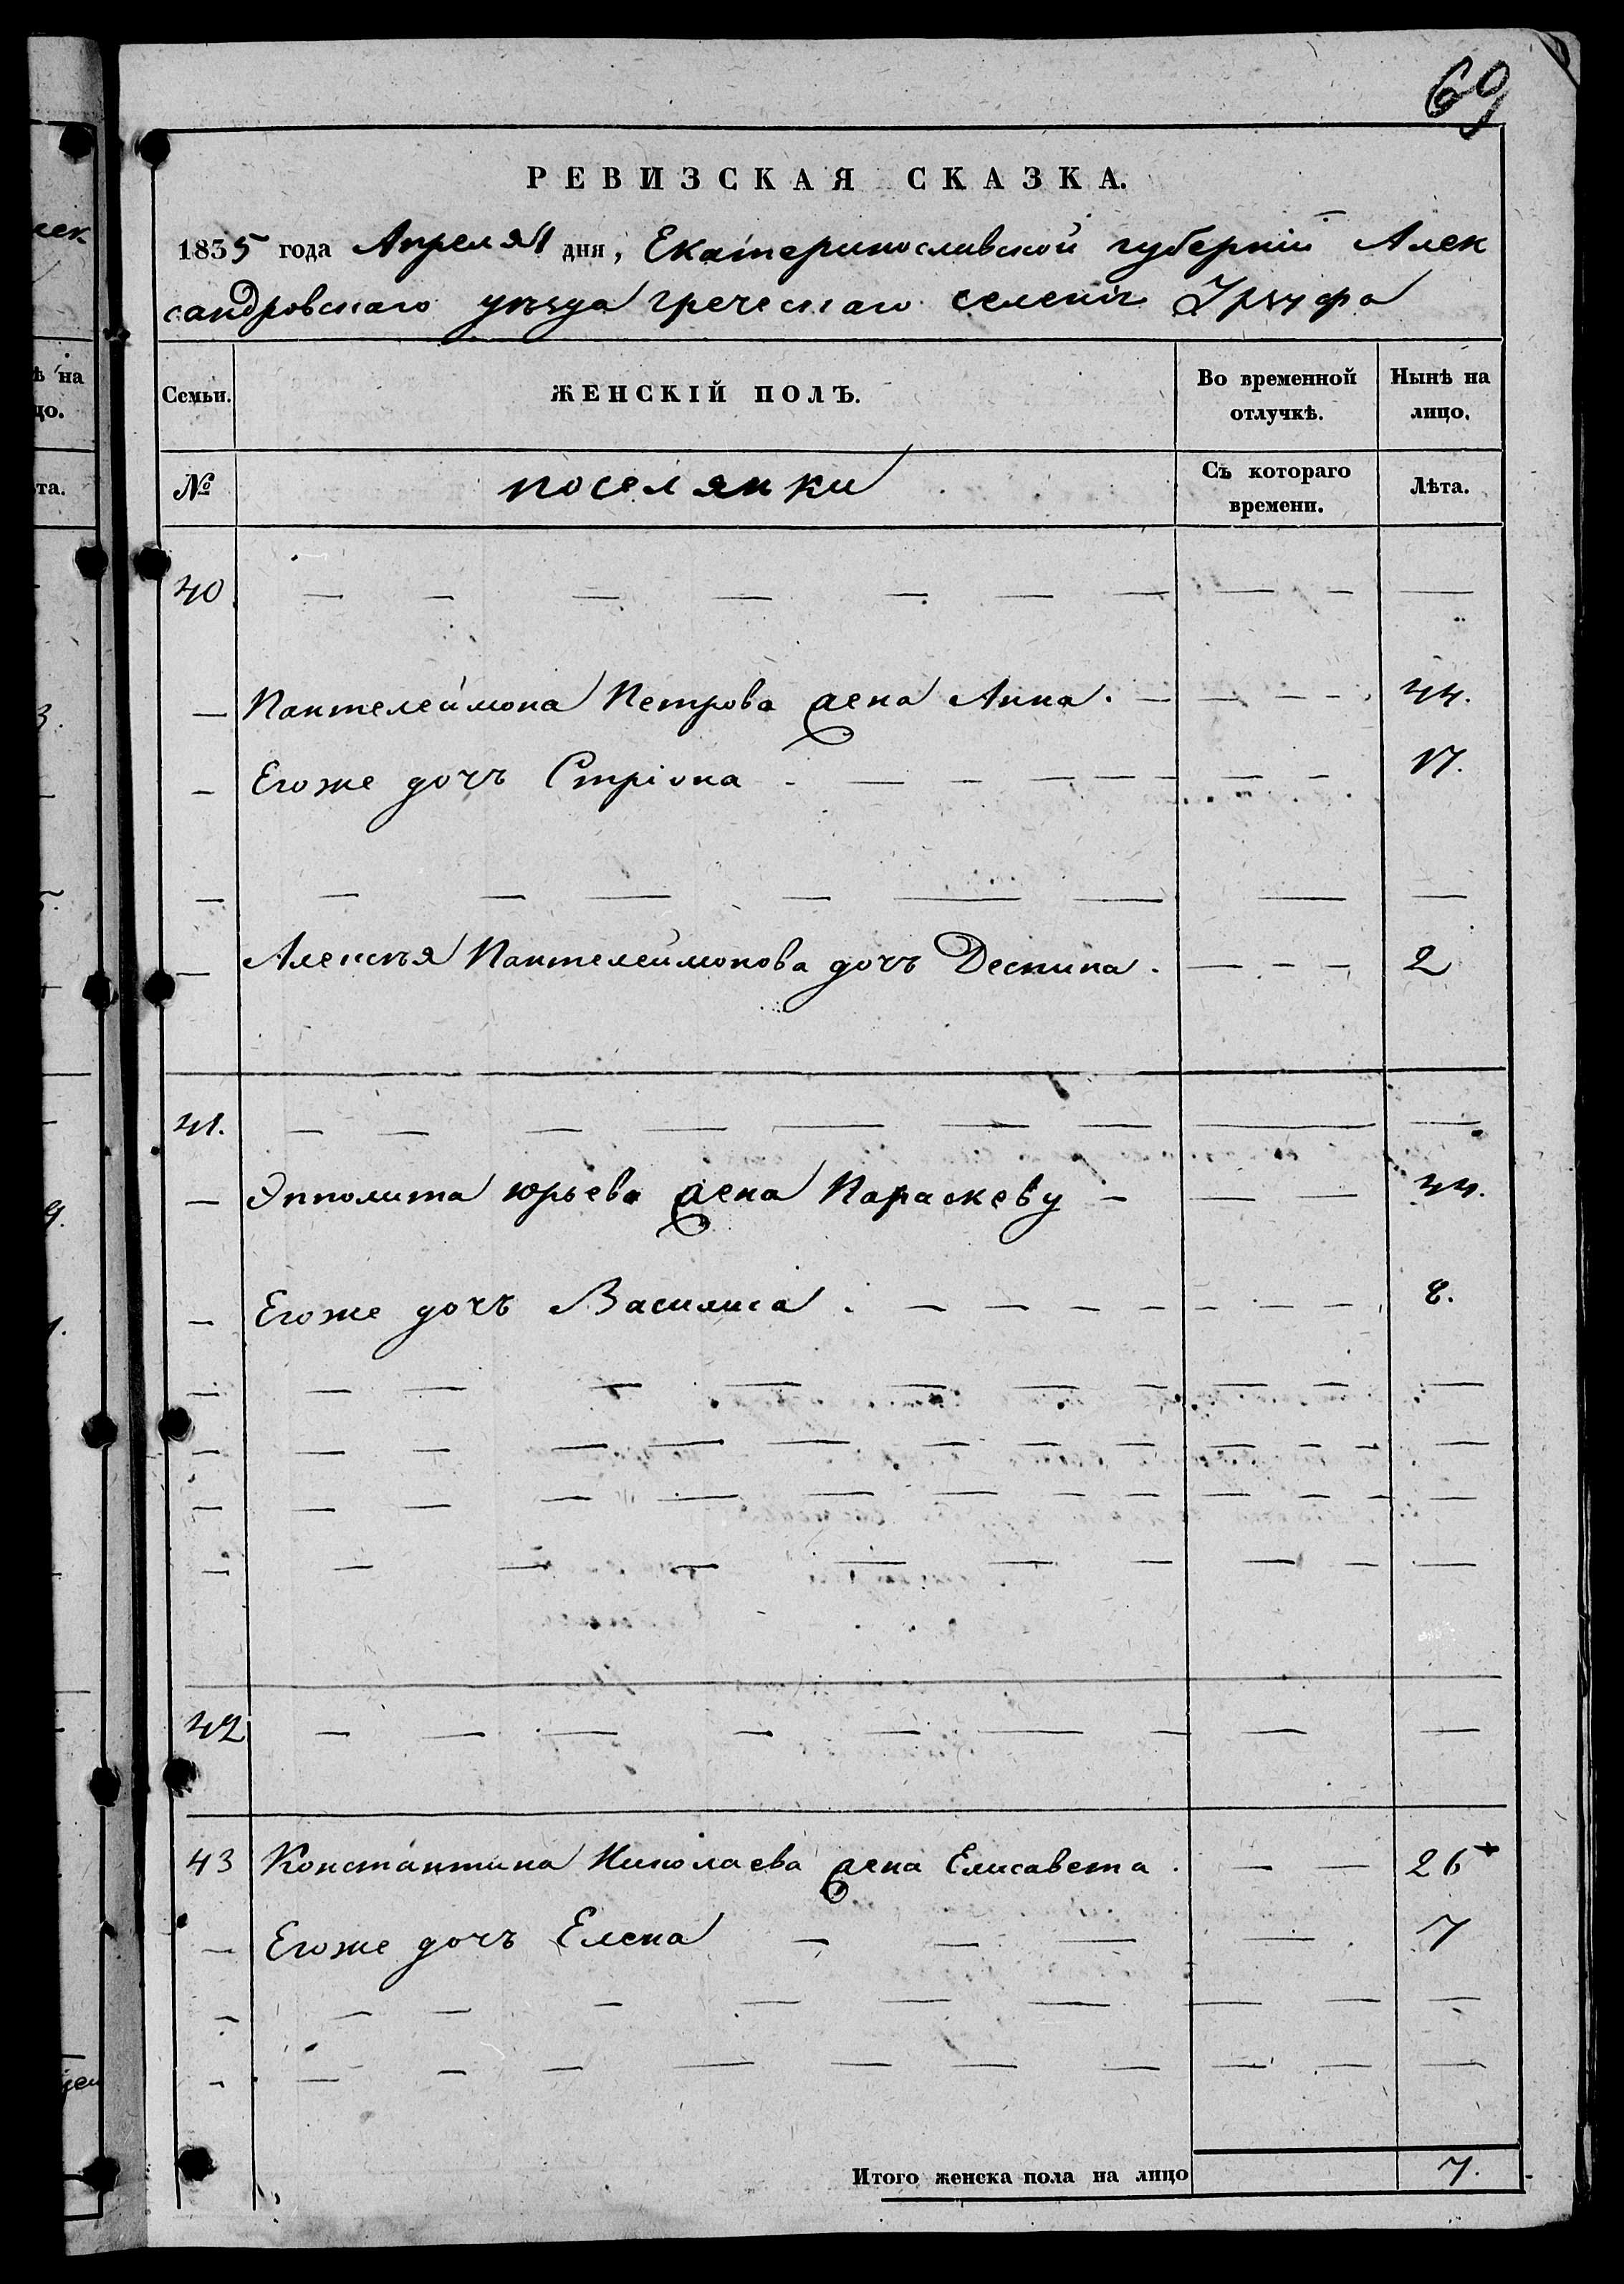 69
РЕВИЗСКАЯ СКАЗКА.
1835 года Апреля 1 дня, Екатеринославской губерніи Алек
сандровскаго уѣзда греческаго селенія Урзуфа
Семьи. ЖЕНСКІЙ ПОЛЪ. Во временной отлучкѣ. Нынѣ на лицо.
№ поселянки Съ котораго времени. Лѣта.
40 — — — — — — — — — —
— Пантелеймона Петрова жена Анна. — — — — 44.
— Егоже дочь Стріона — — — — — — — 17.
— — — — — — — — —
— Алексѣя Пантелеймонова дочь Деспина. — — — 2
41. — — — — — — — — —
— Эпполита Юрьева жена Параскеву — — — 44.
— Егоже дочь Василиса. — — — — — — — — 8.
— — — — — — — — — — —
— — — — — — — — — — — —
— — — — — — — — — — — —
— — — — — — — — — —
42 — — — — — — — — —
43 Константина Николаева жена Елисавета. — — 26
— Егоже дочь Елена — — — — 7
— — — — — — — — — —
— — — — — — — — — — —
Итого женска пола на лицо 7.